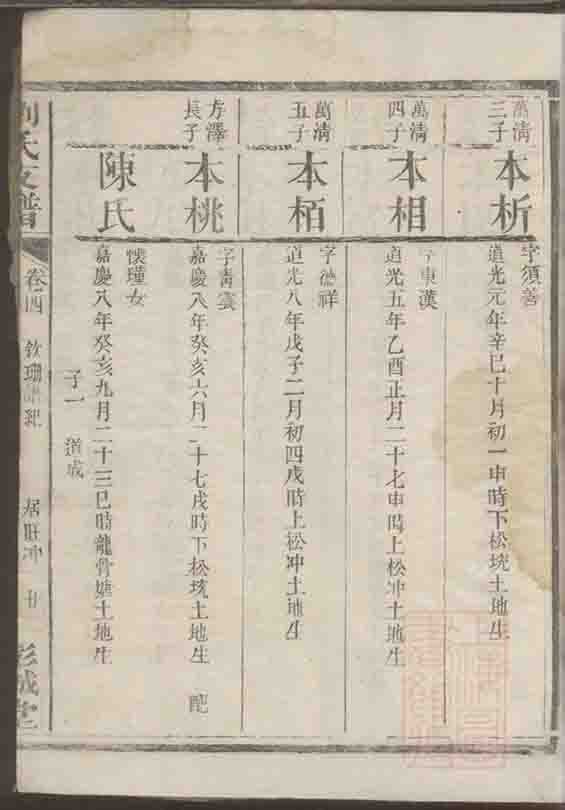 萬清
三子
本析
字須善
道光元年辛巳十月初一申時下松垅土地生
萬清
四子
本相
字東漢
道光五年乙酉正月二十七申時上松冲土地生
萬清
五子
本栢
字德祥
道光八年戊子二月初四戌時上松冲土地生
方澤
長子
本桃
字青雲
嘉慶八年癸亥六月二十七戌時下松垅土地生 配
陳氏
懷瑾女
嘉慶八年癸亥九月二十三巳時龍骨土地生
子一 道成
劉氏支譜
卷四
居旺冲
彭城堂